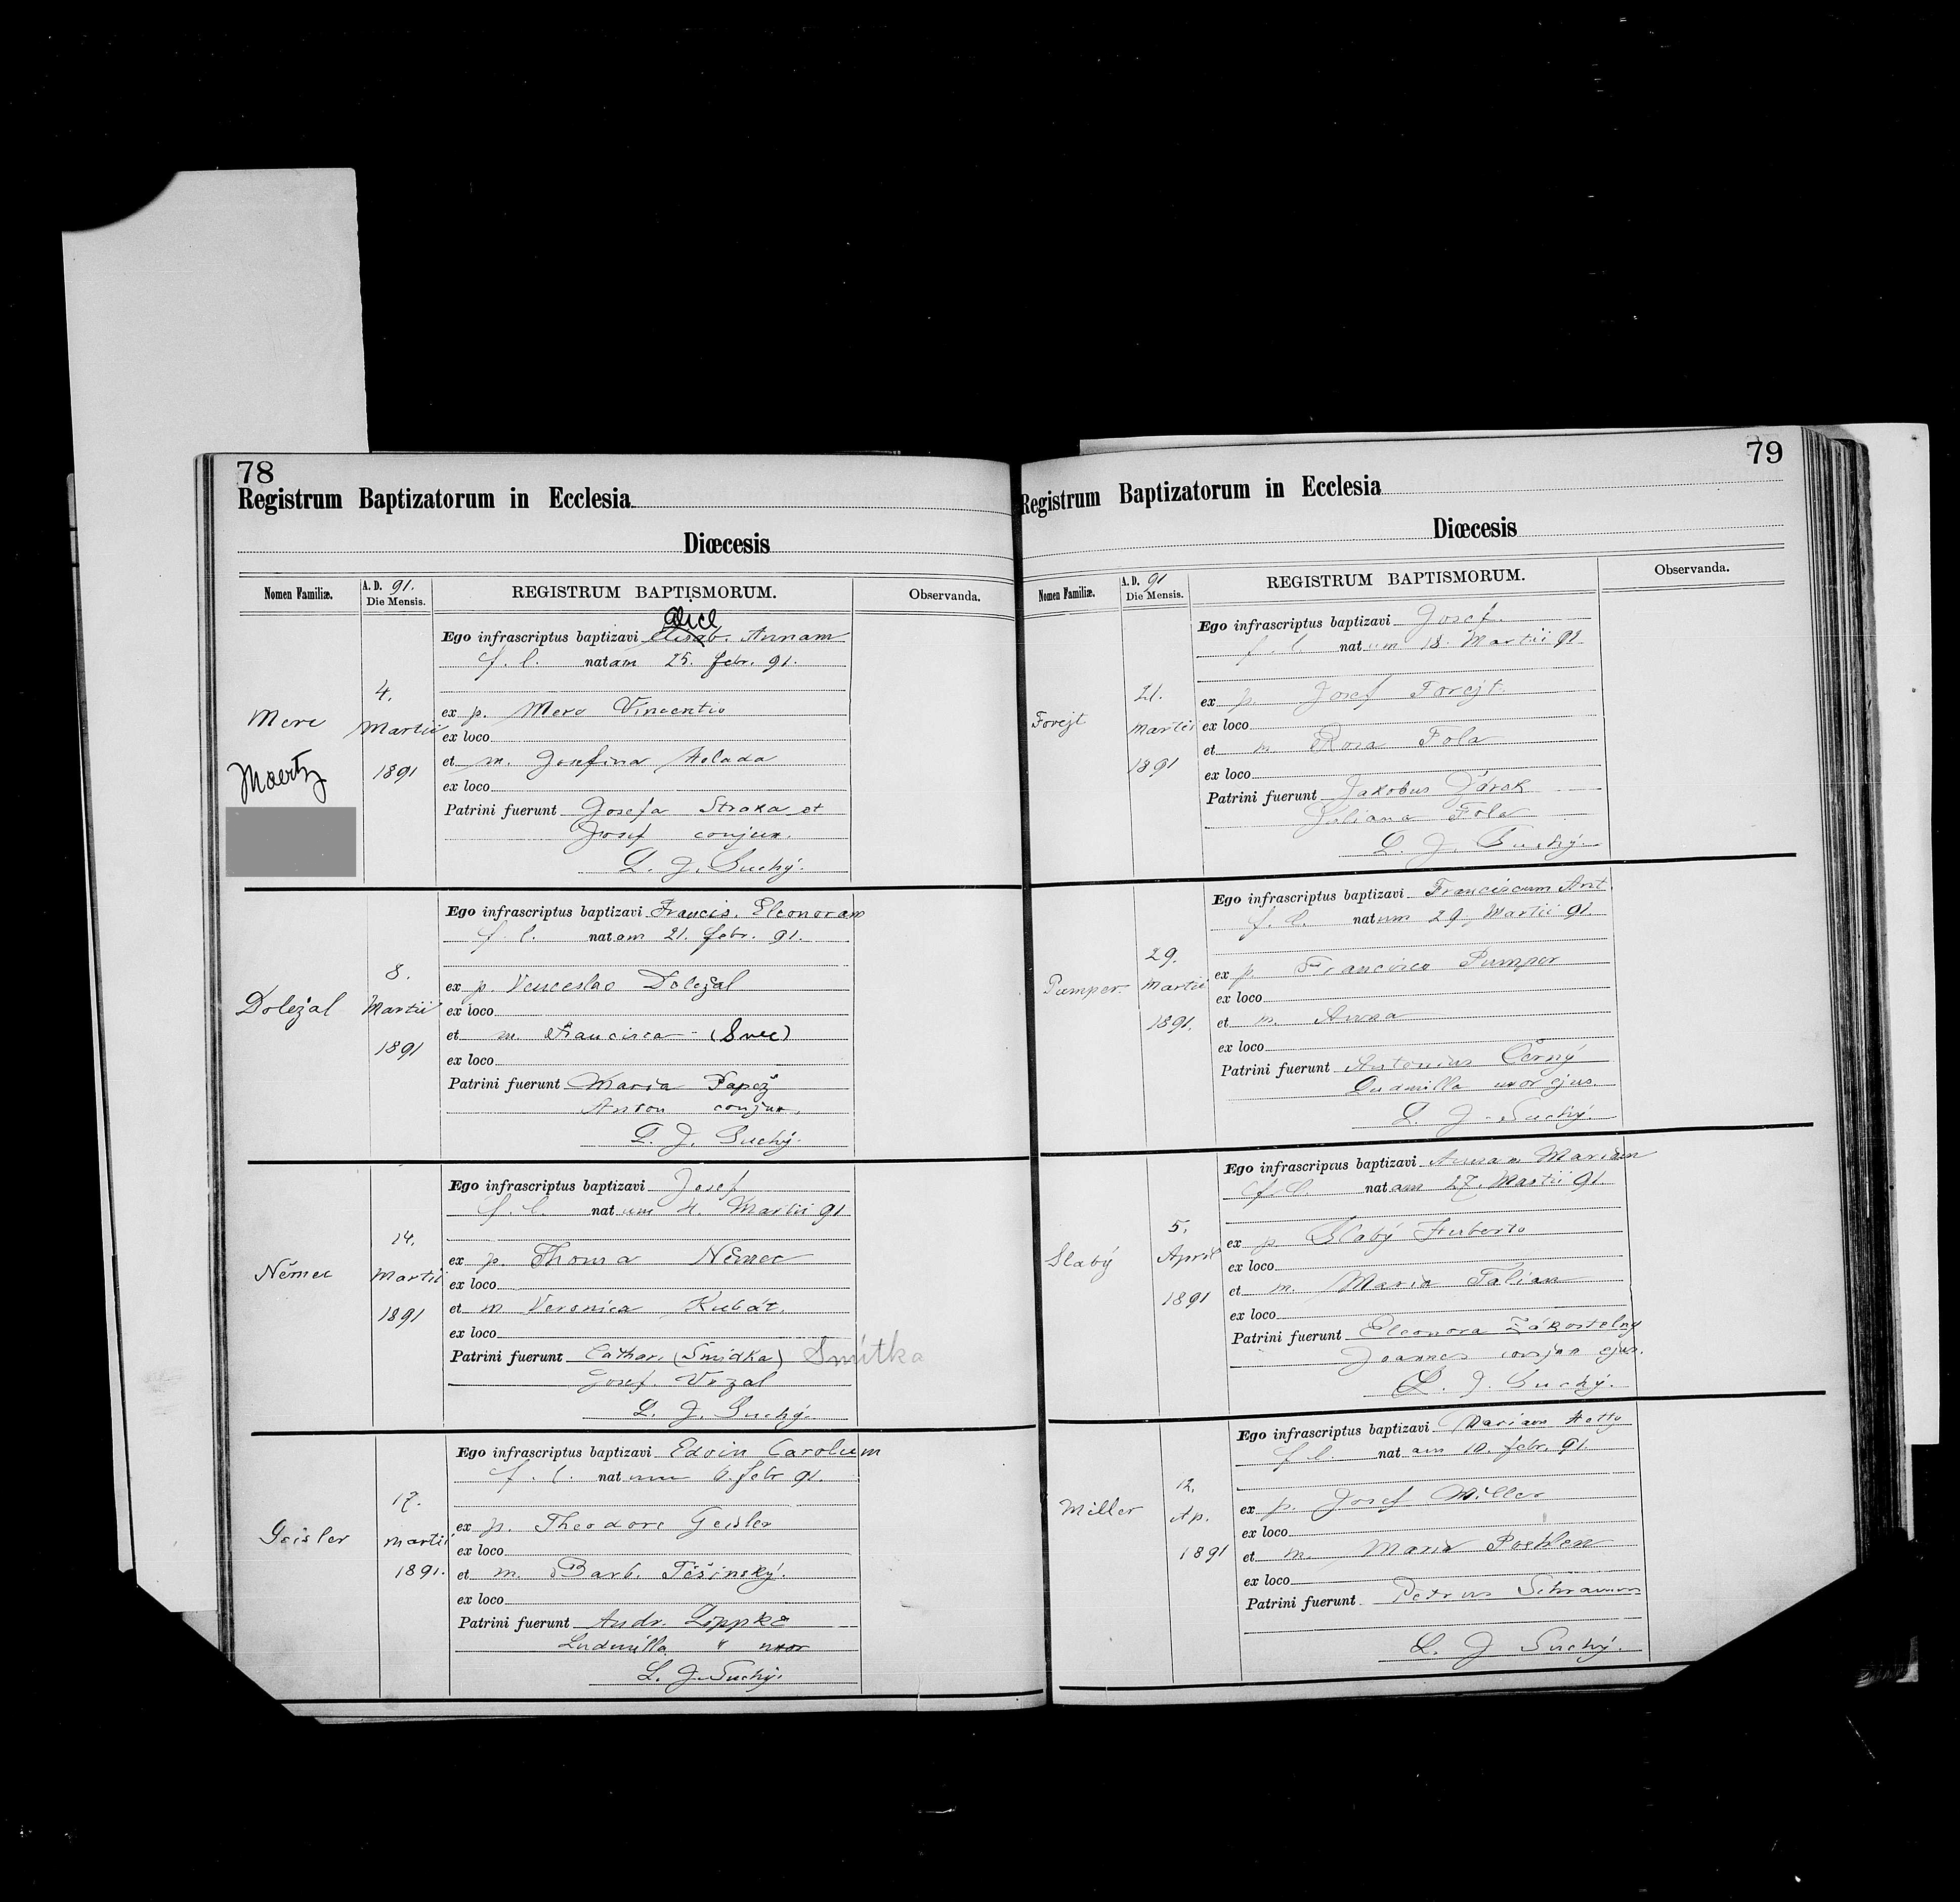 78
Registrum Baptizatorum in Ecclesia
Diœcesis
Nomen Familiæ.
A. D. 91.
Die Mensis.
REGISTRUM BAPTISMORUM.
Observanda.
Merc
Maertz
4.
Martii
1891
Alice
Ego infrascriptus baptizavi Elisab. Annam
f. l. natam 25. febr. 91.
ex p. Merc Vincentio
ex loco
et m. Josefina Holada
ex loco
Patrini fuerunt Josefa Straka et
Josef conjux.
L. J. Suchý.
Doležal
8.
Martii
1891
Ego infrascriptus baptizavi Francis. Eleonoram
f. l. natam 21. febr. 91.
ex p. Venceslao Doležal
ex loco
et m. Francisca (Svec)
ex loco
Patrini fuerunt Maria Papež
Anton conjux.
L. J. Suchý.
Němec
14.
Martii
1891
Ego infrascriptus baptizavi Josef
f. l. natum 4. Martii 91
ex p. Thoma Němec
ex loco
et m Veronica Kubát.
ex loco
Patrini fuerunt Cathar. (Smidka) Smitka
Josef Vrzal
L. J. Suchý.
Geisler
17.
Martii
1891.
Ego infrascriptus baptizavi Edvin Carolum
f. l. natum 6. febr 91.
ex p. Theodore Geisler
ex loco
et m. Barb. Těšinský.
ex loco
Patrini fuerunt Andr. Lippke
Ludmilla " uxor
L. J. Suchý.
79
Registrum Baptizatorum in Ecclesia
Diœcesis
Nomen Familiæ.
A. D. 91
Die Mensis.
REGISTRUM BAPTISMORUM.
Observanda.
Forejt
21.
Martii
1891
Ego infrascriptus baptizavi Josef
f. l. natum 18. Martii 91.
ex p. Josef Forejt
ex loco
et m. Rosa Fola
ex loco
Patrini fuerunt Jakobus
Juliana Fola
L. J. Suchý.
Pumper.
29.
Martii
1891.
Ego infrascriptus baptizavi Franciscum Ant.
f. l. natum 29. Martii 91.
ex p. Francisco Pumper
ex loco
et m. Anna
ex loco
Patrini fuerunt Antonius Černý
Ludmilla uxor ejus.
L. J. Suchý.
Slabý
5.
April
1891
Ego infrascriptus baptizavi Annam Mariam
f. l. natam 27. Martii 91.
ex p. Slabý Huberto
ex loco
et m. Maria Falian
ex loco
Patrini fuerunt Eleonora Zákostelný
Joannes conjux ejus.
L. J. Suchý.
Miller
12.
Ap.
1891
Ego infrascriptus baptizavi Mariam Hetty
f. l. natam 10. febr. 91.
ex p. Josef Miller
ex loco
et m. Maria
ex loco
Patrini fuerunt Petrus Schramm
L. J. Suchý.